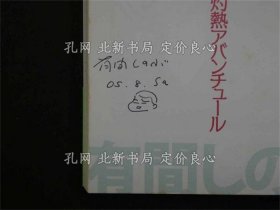 孔网 北新书局 定价良心
有間しのぶ
05.8.5a
灼熱アバンチュール
孔网 北新书局 定价良心
有間しの
孔网 北新书局 定价良心